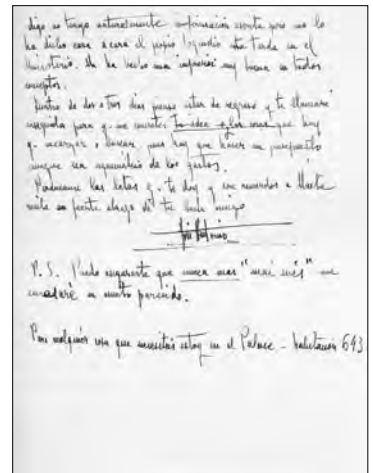 digo no tengo naturalmente información escrita pero me lo
ha dicho cara a cara el propio esta tarde en el
Ministerio. Me ha hecho una impresión muy buena en todos
conceptos.
Dentro de dos o tres días pienso estar de regreso y te llamaré
enseguida para q. me cuentes tu idea y las cosas que hay
q. hay que hacer un presupuesto
aunque sea aproximado de los gastos.
Perdoname las latas q. te doy y con recuerdos a
recibe un fuerte abrazo de tu buen amigo
P.S. Puedo asegurarte que nunca mas "mais" me
en nuestro
Para cualquier cosa que necesites estoy en el Palace - habitación 643